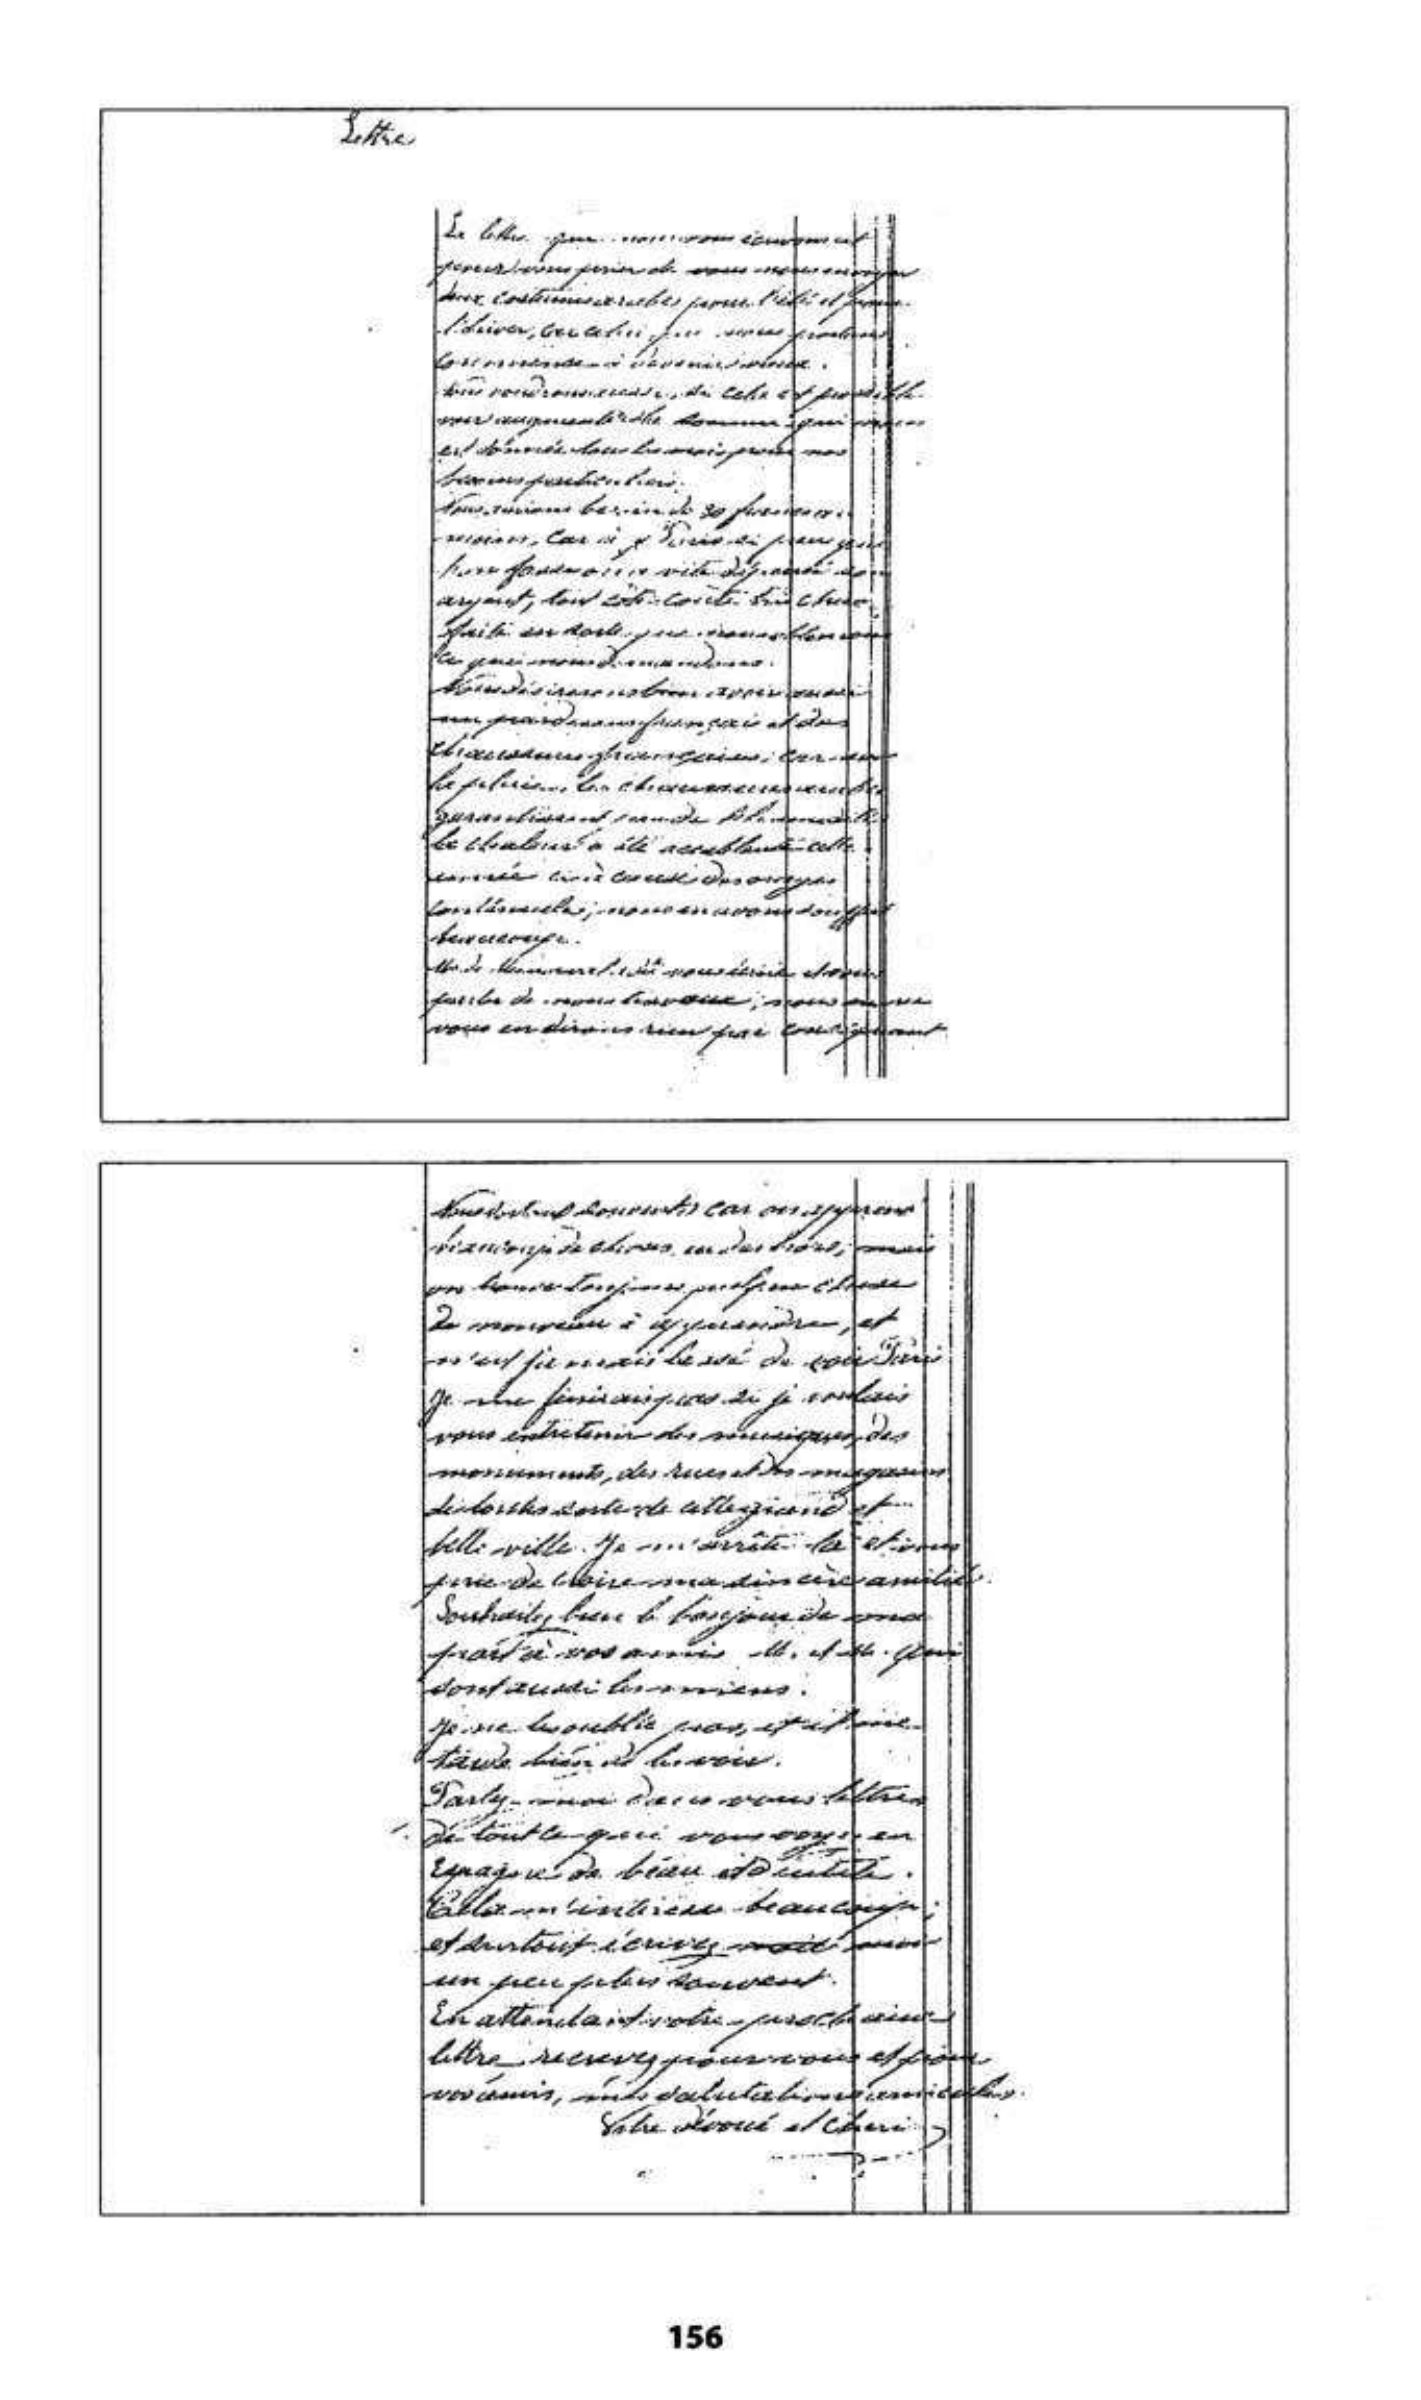 Lettre
La lettre que nous vous écrivons est
pour vous prier de vous nous envoyer
deux costumes arabes pour l'été et pour
l'hiver, car celui que nous portons
commence à devenir vieux.
voudrions aussi, si cela est possible
voir augmenter la somme qui nous
est donnée tous les mois pour nos
besoins particuliers.
Nous avons besoin de 30 francs au
moins, car à Paris si peu que
l'on fasse on a vite dépensé son
argent, tout coûte très cher
faite en sorte que nous
ce que nous demandons.
Nous désirons bien avoir aussi
un pardessus français et des
chaussures françaises, car
la pluie les chaussures arabes
garantissent peu de l'humidité
La chaleur a été accablante cette
année à cause des orages
continuels; nous en avons souffert
beaucoup.
M. de vous écrire et vous
parler de nous travaux; nous ne
vous en dirons rien par conséquent
Nous sortons souvent car on apprend
beaucoup de choses en dehors; mais
on trouve toujours quelque chose
de nouveau à apprendre, et
n'est jamais lassé de voir Paris
Je ne finirais pas si je voulais
vous entretenir des musiques, des
monuments, des rues et des magasins
de toutes sorte de cette grand et
belle ville. Je m'arrête là et vous
prie de croire ma sincère amitié.
Souhaitez bien le bonjour de ma
part à vos amis M. et M. qui
sont aussi les miens.
Je ne les oublie pas, et il me
tarde bien de les voir.
Parlez-moi dans vous lettres
de tout ce que vous voyez en
Espagne de beau et d'utile.
Cela m'intéresse beaucoup;
et surtout écrivez moi
un peu plus souvent.
En attendant votre prochaine
lettre recevez pour vous et pour
vos amis, mes salutations amicales.
Votre dévoué et cheri
156